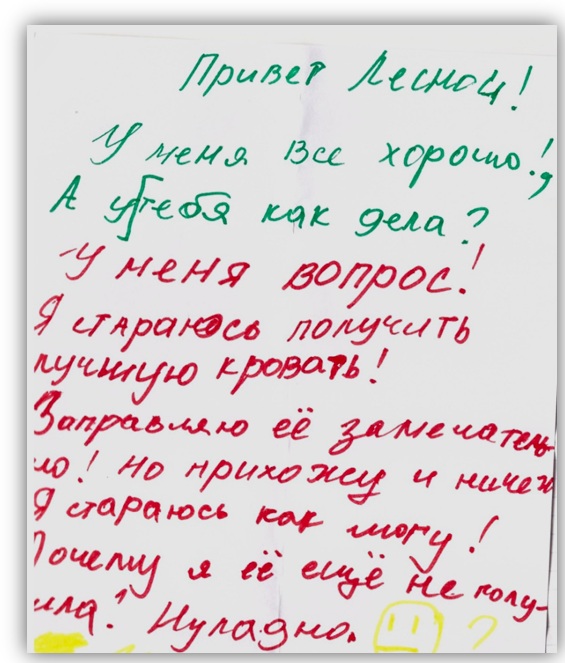 Привет Лесной!
У меня все хорошо!,
А у тебя как дела?
У меня вопрос!
Я стараюсь получить
лучшую кровать!
Заправляю её замечатель-
но! Но прихожу и ничего
Я стараюсь как могу!
Почему я её ещё не полу-
чила? Ну ладно.
?